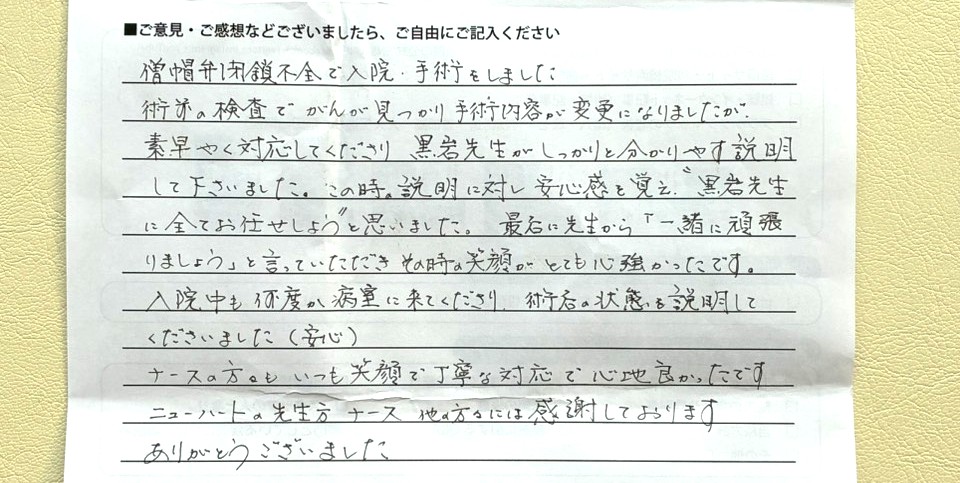 ■ご意見・ご感想などございましたら、ご自由にご記入ください
僧帽弁閉鎖不全で入院・手術をしました
術前の検査でがんが見つかり手術内容が変更になりましたが、
素早やく対応してくださり 黒岩先生がしっかりと分かりやす説明
して下さいました。この時。説明に対し安心感を覚え、〝黒岩先生
に全てお任せしよう〟と思いました。 最后に先生から「一緒に頑張
りましょう」と言っていただき その時の笑顔がとても心強かったです。
入院中も何度か病室に来てくださり、術后の状態を説明して
くださいました(安心)
ナースの方々も いつも笑顔で丁寧な対応で心地良かったです
ニューハートの先生方 ナース 他の方々には感謝しております
ありがとうございました